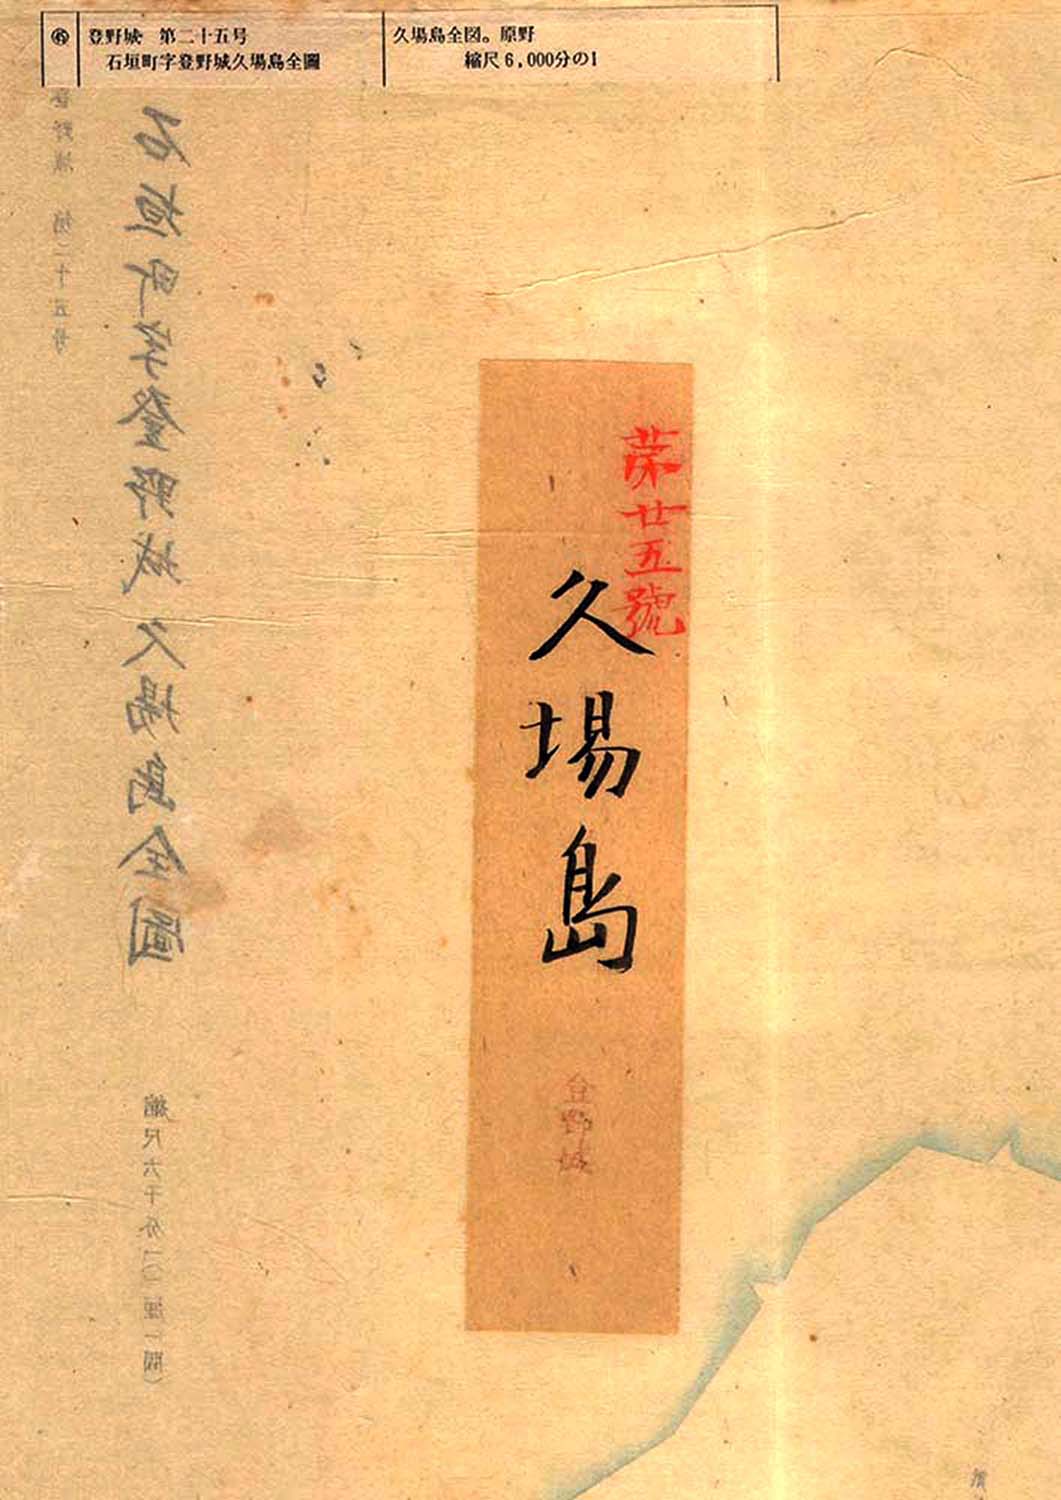 登野城 第二十五号
石垣町字登野城久場島全圖
久場島全図。原野
縮尺6,000分の1
第廿五號
久場島
登野城
石垣町字登野城 久場島全圖
登野城 第二十五号
縮尺六千分一